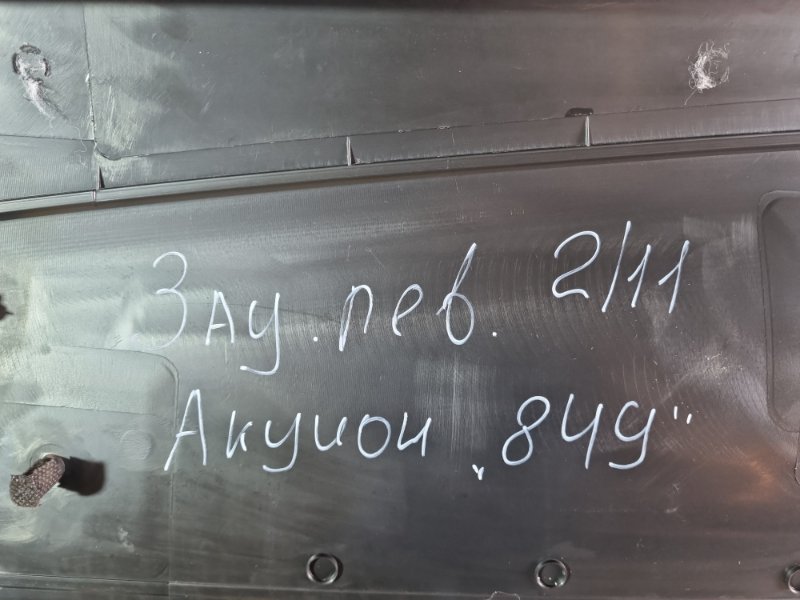 Зау. лев. 2/11
Акцион „849"